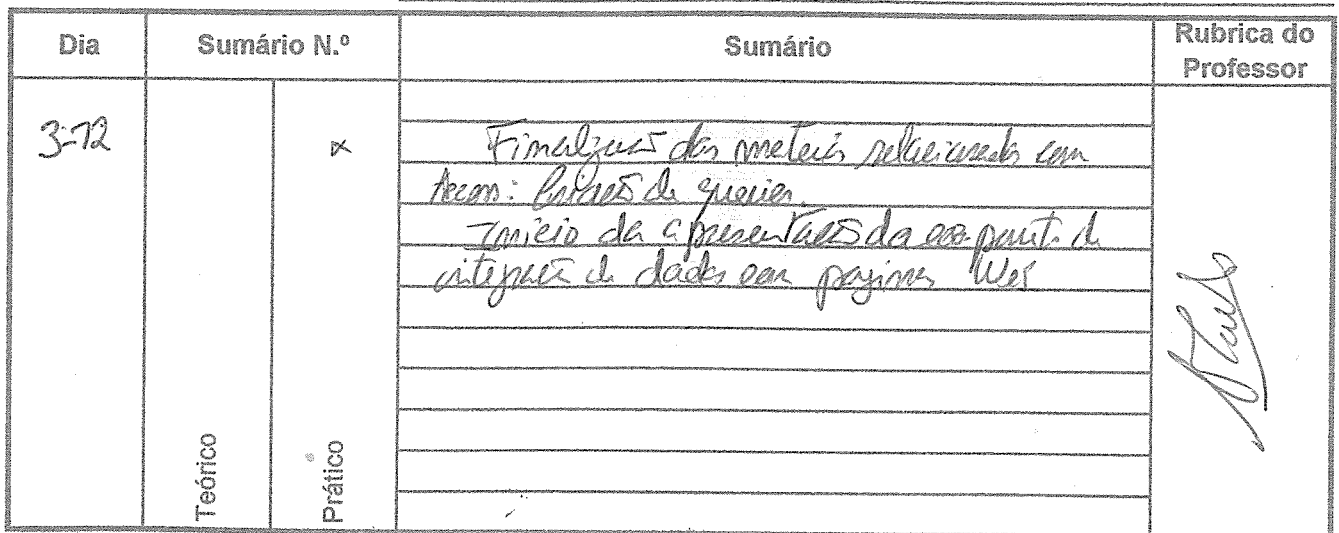 Dia Sumário N.º Sumário Rubrica do Professor
3-12 x
Finalização das matérias relacionadas com
Access: Criação de queries.
Início da apresentação da componente de
integração de dados com paginas Web
Teórico Prático